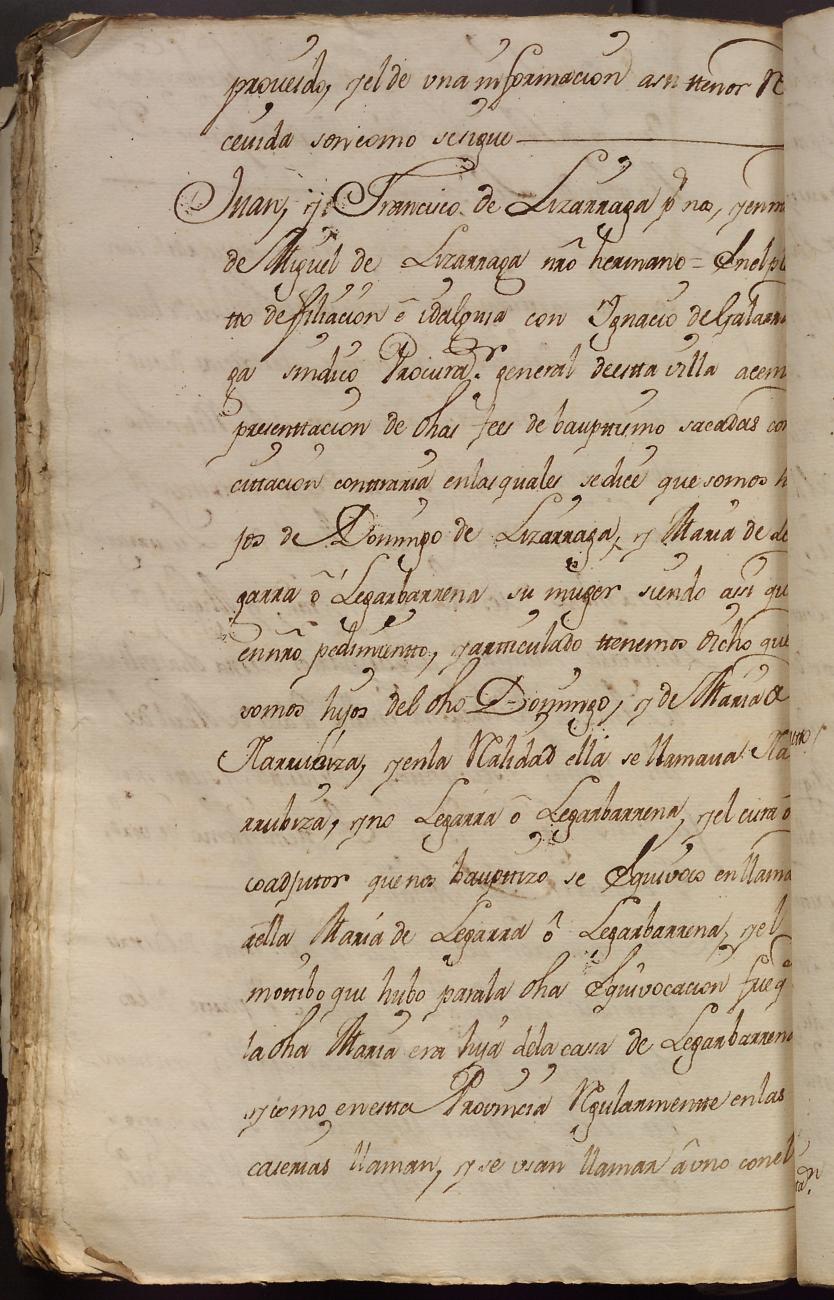 proueido, y el de vna informacion asu ttenor Re
ceuida son como se sigue
Juan, y Francisco de Lizarraga pr nos, y en no
de Miguel de Lizarraga nrõ hermano = En el pl
tto de filiacion ẽ idalguia con Ignacio de Galarra
ga sindico Procurador general de esta villa acem
presenttacion de dhas fees de bauptismo sacadas con
cittacion conttraria en las quales se dice que somos h
jos de Domingo de Lizarraga, y Maria de Le
garra ô Legarbarrena su muger siendo assi que
en nrõ pedimientto, y artticulado ttenemos dicho que
somos hijos del dho Domingo, y de Maria de
Narrubiza, y en la Realidad ella se llamaua Na
rrubiza, y no Legarra ô Legarbarrena, y el cura ô
coadjutor que nos bauptizo se Equivoco en llama
a ella Maria de Legarra ô Legarbarrena, y el
mottibo que hubo para la dha Equivocacion fue q
la dha Maria era hija de la casa de Legarbarrena
y como en estta Provincia Regularmentte en las
caserias llaman, y se vsan llamar â vno con el